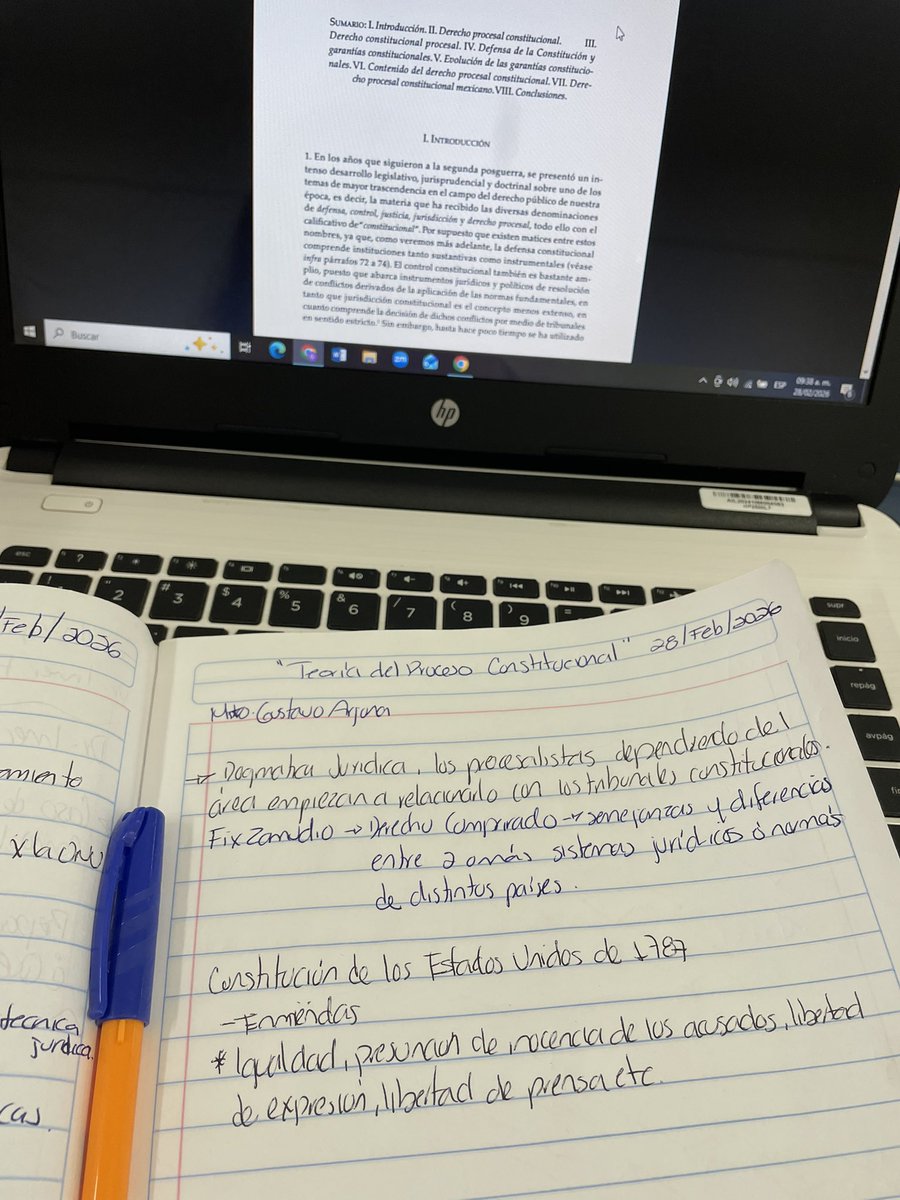 SUMARIO: I. Introducción. II. Derecho procesal constitucional. III.
Derecho constitucional procesal. IV. Defensa de la Constitución y
garantías constitucionales. V. Evolución de las garantías constitucio-
nales. VI. Contenido del derecho procesal constitucional. VII. Dere-
cho procesal constitucional mexicano. VIII. Conclusiones.
I. INTRODUCCIÓN
1. En los años que siguieron a la segunda posguerra, se presentó un in-
tenso desarrollo legislativo, jurisprudencial y doctrinal sobre uno de los
temas de mayor trascendencia en el campo del derecho público de nuestra
época, es decir, la materia que ha recibido las diversas denominaciones
de defensa, control, justicia, jurisdicción y derecho procesal, todo ello con el
calificativo de "constitucional". Por supuesto que existen matices entre estos
nombres, ya que, como veremos más adelante, la defensa constitucional
comprende instituciones tanto sustantivas como instrumentales (véase
infra párrafos 72 a 74). El control constitucional también es bastante am-
plio, puesto que abarca instrumentos jurídicos y políticos de resolución
de conflictos derivados de la aplicación de las normas fundamentales, en
tanto que jurisdicción constitucional es el concepto menos extenso, en
cuanto comprende la decisión de dichos conflictos por medio de tribunales
en sentido estricto. Sin embargo, hasta hace poco tiempo se ha utilizado
Buscar
ESP
09:38 a. m.
28/02/2026
hp
esc
?
2
# 3
$ 4
% 5
& 6
/ 7
( 8
) 9
=
supr
inicio
repág
avpág
/Feb/2026
amiento
x la ONU
tecnica
jurídica.
cas.
"Teoría del Proceso Constitucional" 28/Feb/2026
Mtro. Gustavo Arjona
→ Dogmatica Jurídica, los procesalistas dependiendo del
área empiezan a relacionarlo con los tribunales constitucionales.
Fix Zamudio → Derecho Comparado → semejanzas y diferencias
entre 2 o más sistemas jurídicos ó normas
de distintos países.
Constitución de los Estados Unidos de 1787
- Enmiendas
* Igualdad, presuncion de inocencia de los acusados, libertad
de expresión, libertad de prensa etc.